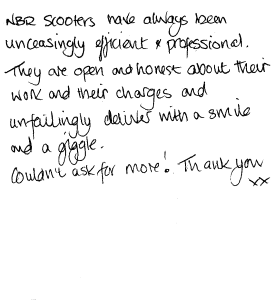 NBR Scooters have always been
unceasingly efficient & professional.
They are open and honest about their
work and their charges and
unfailingly deliver with a smile
and a giggle.
Couldn't ask for more! Thank you
xx